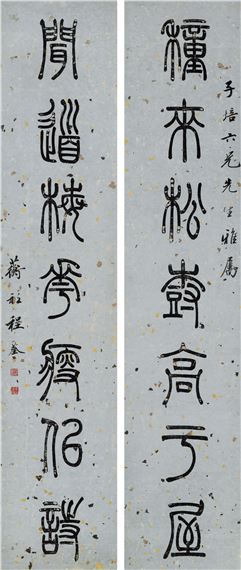 子培六兄先生雅屬
種來松尌高于屋
聞道梅花瘦佀詩
蘅衫程荃